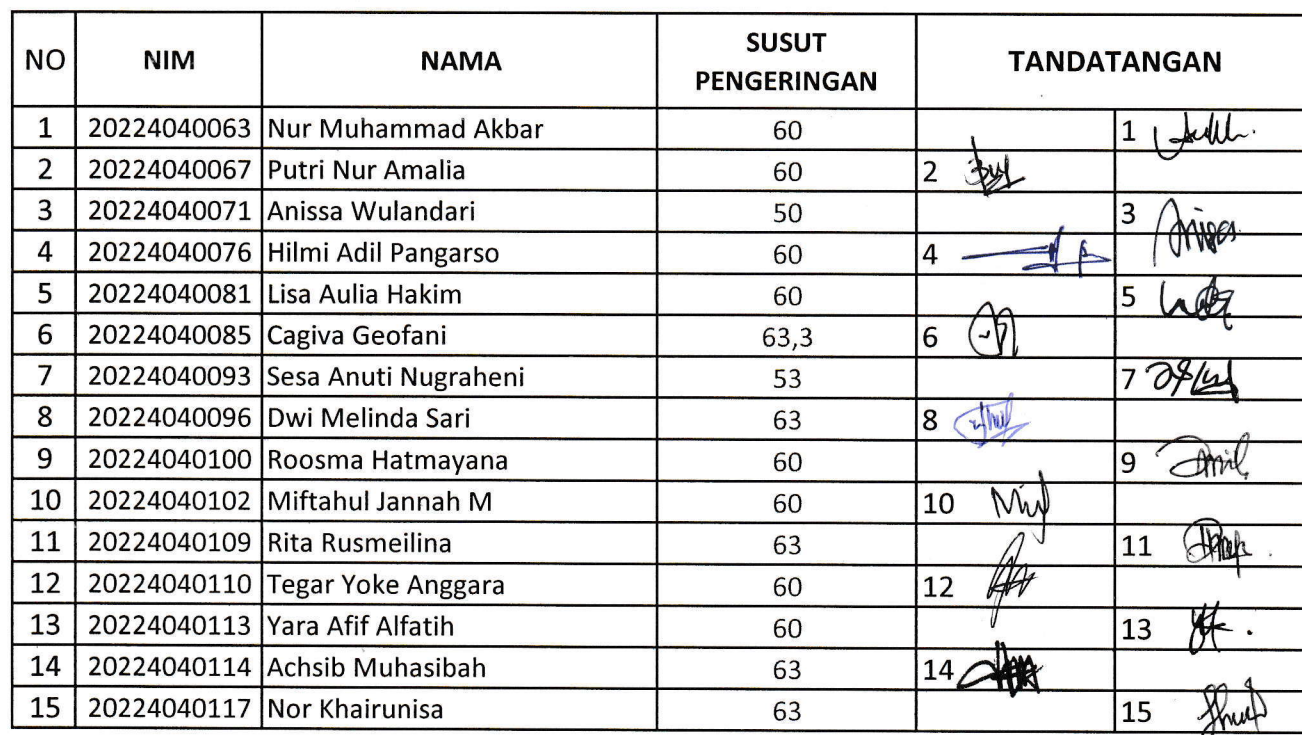 NO NIM NAMA SUSUT PENGERINGAN TANDATANGAN
1 20224040063 Nur Muhammad Akbar 60 1
2 20224040067 Putri Nur Amalia 60 2
3 20224040071 Anissa Wulandari 50 3
4 20224040076 Hilmi Adil Pangarso 60 4
5 20224040081 Lisa Aulia Hakim 60 5
6 20224040085 Cagiva Geofani 63,3 6
7 20224040093 Sesa Anuti Nugraheni 53 7
8 20224040096 Dwi Melinda Sari 63 8
9 20224040100 Roosma Hatmayana 60 9
10 20224040102 Miftahul Jannah M 60 10
11 20224040109 Rita Rusmeilina 63 11
12 20224040110 Tegar Yoke Anggara 60 12
13 20224040113 Yara Afif Alfatih 60 13
14 20224040114 Achsib Muhasibah 63 14
15 20224040117 Nor Khairunisa 63 15